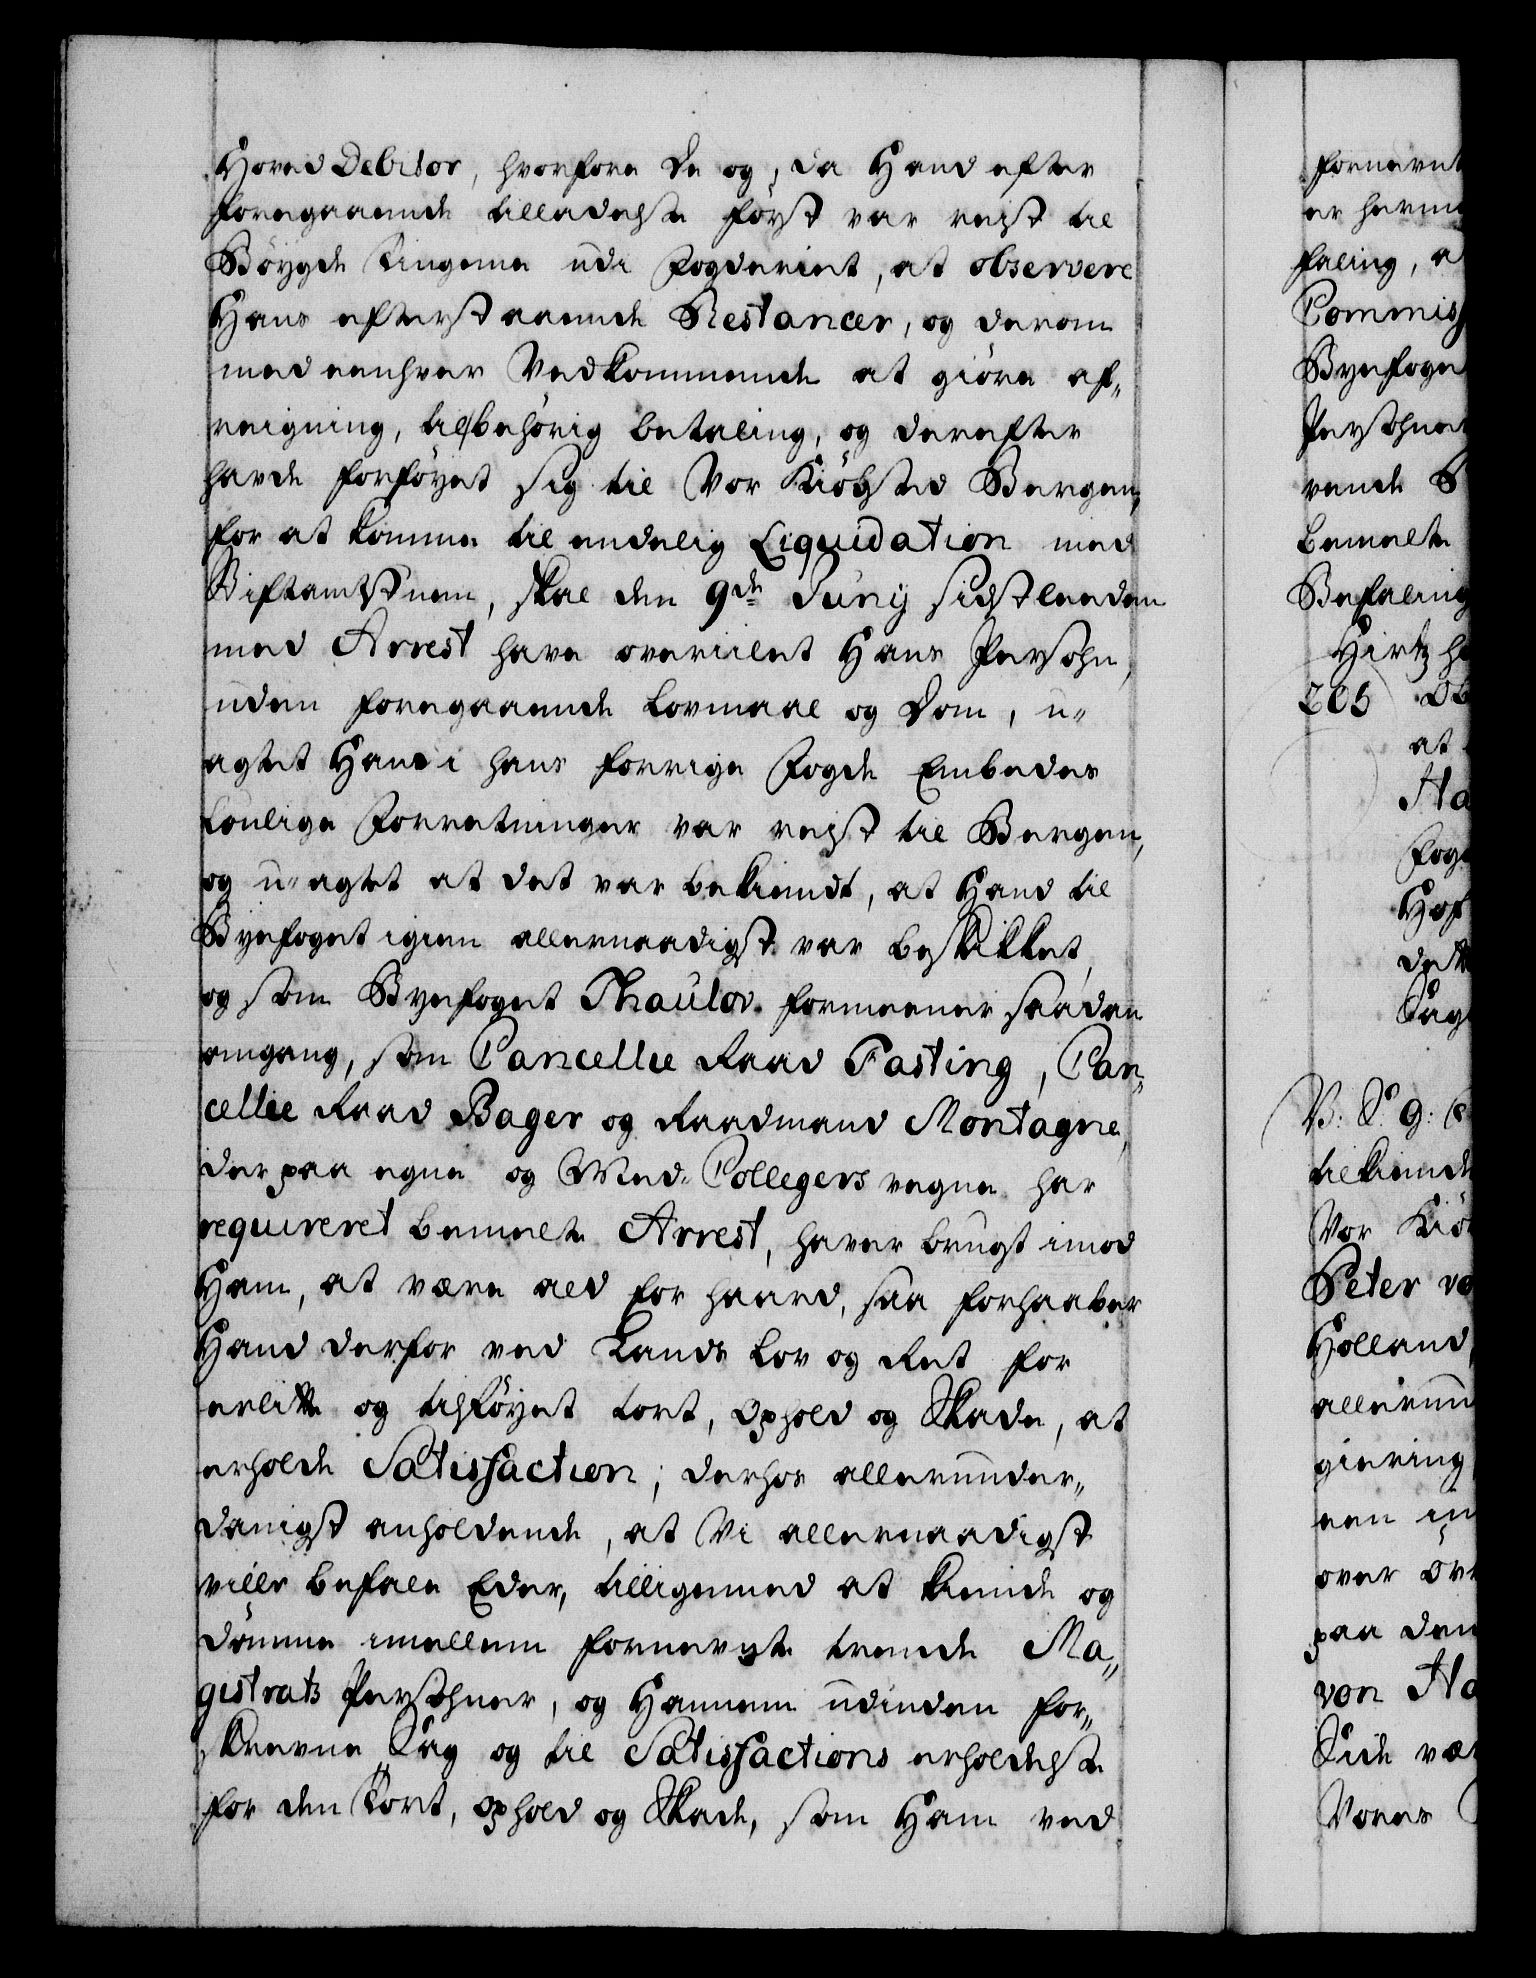 Hoved Debitor, hvorfore De og, da Hand efter
foregaaende tilladelse först var reist til
Böygde Tingene udi Fogderiet, at observere
Hans efterstaaende Restancer, og derom
med eenhver Vedkommende at giöre af„
reigning, til behörig betaling, og derefter
havde forföyet sig til Vor Kiöbsted Bergen,
for at komme til endelig Liquidation med
Stiftamtstuen, skal den 9de Junij sidstleeden
med Arrest have overiilet Hans Persohn,
uden foregaaende Lovmaal og Dom, u„
agtet Hand i hans forrige Fogde Embedes
Lovlige Forretninger var reist til Bergen,
og u-agtet at det var bekiendt, at Hand til
Byefoget igien allernaadigst var beskikket,
og som Byefoget Thaulov formeener saadan
omgang, som Cancellie Raad Fasting, Can„
cellie Raad Bager og Raadmand Montagne,
der paa egne og Med-Collegers vegne har
requireret bemelte Arrest, haver brugt imod
Ham, at være ald for haard, saa forhaaber
Hand derfor ved Lands Lov og Ret for
erlitte og tilföyet tort, ophold og Skade, at
erholde Satisfaction; derhos allerunder„
danigst anholdende, at Vi allernaadigst
ville befale Eder, tilligemed at kiende og
dömme imellem fornevnte trende Ma„
gistrats Persohner, og Hannem udi den for„
skrevne Sag og til Satisfactions erholdelse
for den Tort, ophold og Skade, som Ham ved
fornevnt
er herme
faling, a
Commiss
Byefoge
Persohner
vende S
bemelte
Befaling
Hirtz h
205 Ob
at
Ha
Fog
Hof
dette
Sag
V: S. G:
tilkiende
Vor Kiö
Peter vo
Holland,
allerun
giering
een in
over Ov
paa den
von Ha
Side væ
Vores